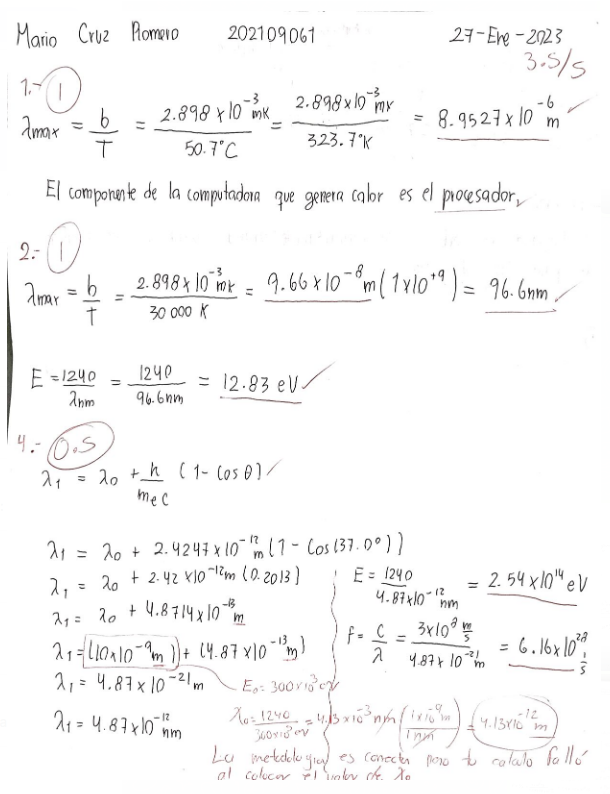 Mario Cruz Romero 202109061 27-Ene-2023
3.5/5
1.- 1
λmax = b/T = 2.898 x 10^-3 mK / 50.7°C = 2.898 x 10^-3 mK / 323.7°K = 8.9527 x 10^-6 m ✓
El componente de la computadora que genera calor es el procesador. ✓
2.- 1
λmax = b/T = 2.898 x 10^-3 mK / 30 000 K = 9.66 x 10^-8 m (1x10^+9) = 96.6nm ✓
E = 1240/λnm = 1240/96.6nm = 12.83 eV ✓
4.- 0.5
λ1 = λ0 + h/mec (1 - Cos θ) ✓
λ1 = λ0 + 2.4247x10^-12 m (1 - Cos(37.0°))
λ1 = λ0 + 2.42 x10^-12 m (0.2013)
λ1 = λ0 + 4.8714x10^-13 m
λ1 = (10x10^-9 m) + (4.87 x10^-13 m)
λ1 = 4.87 x 10^-21 m
λ1 = 4.87x10^-12 nm
E = 1240 / 4.87x10^-12 nm = 2.54x10^14 eV
f = C/λ = 3x10^8 m/s / 4.87x10^-21 m = 6.16x10^28 1/s
E0 = 300x10^3 eV
λ0 = 1240 / 300x10^3 eV = 4.13x10^-3 nm (1x10^-9 m / 1nm) = 4.13x10^-12 m
La metodología es correcta pero tu calculo falló
al colocar el valor de λ0